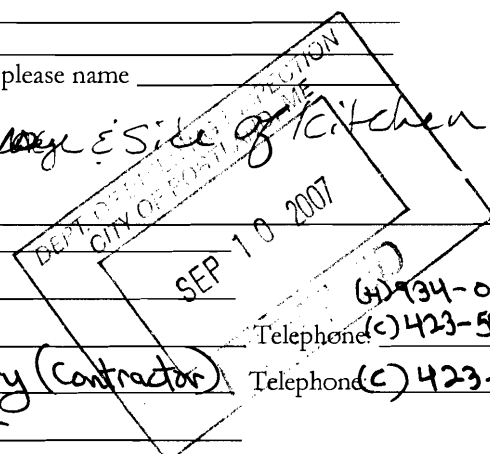 please name
& Side of Kitchen
DEPT. OF INSPECTION
CITY OF PORTLAND, ME
SEP 10 2007
(H) 934-0
Telephone (C) 423-5
ry (Contractor) Telephone (C) 423-